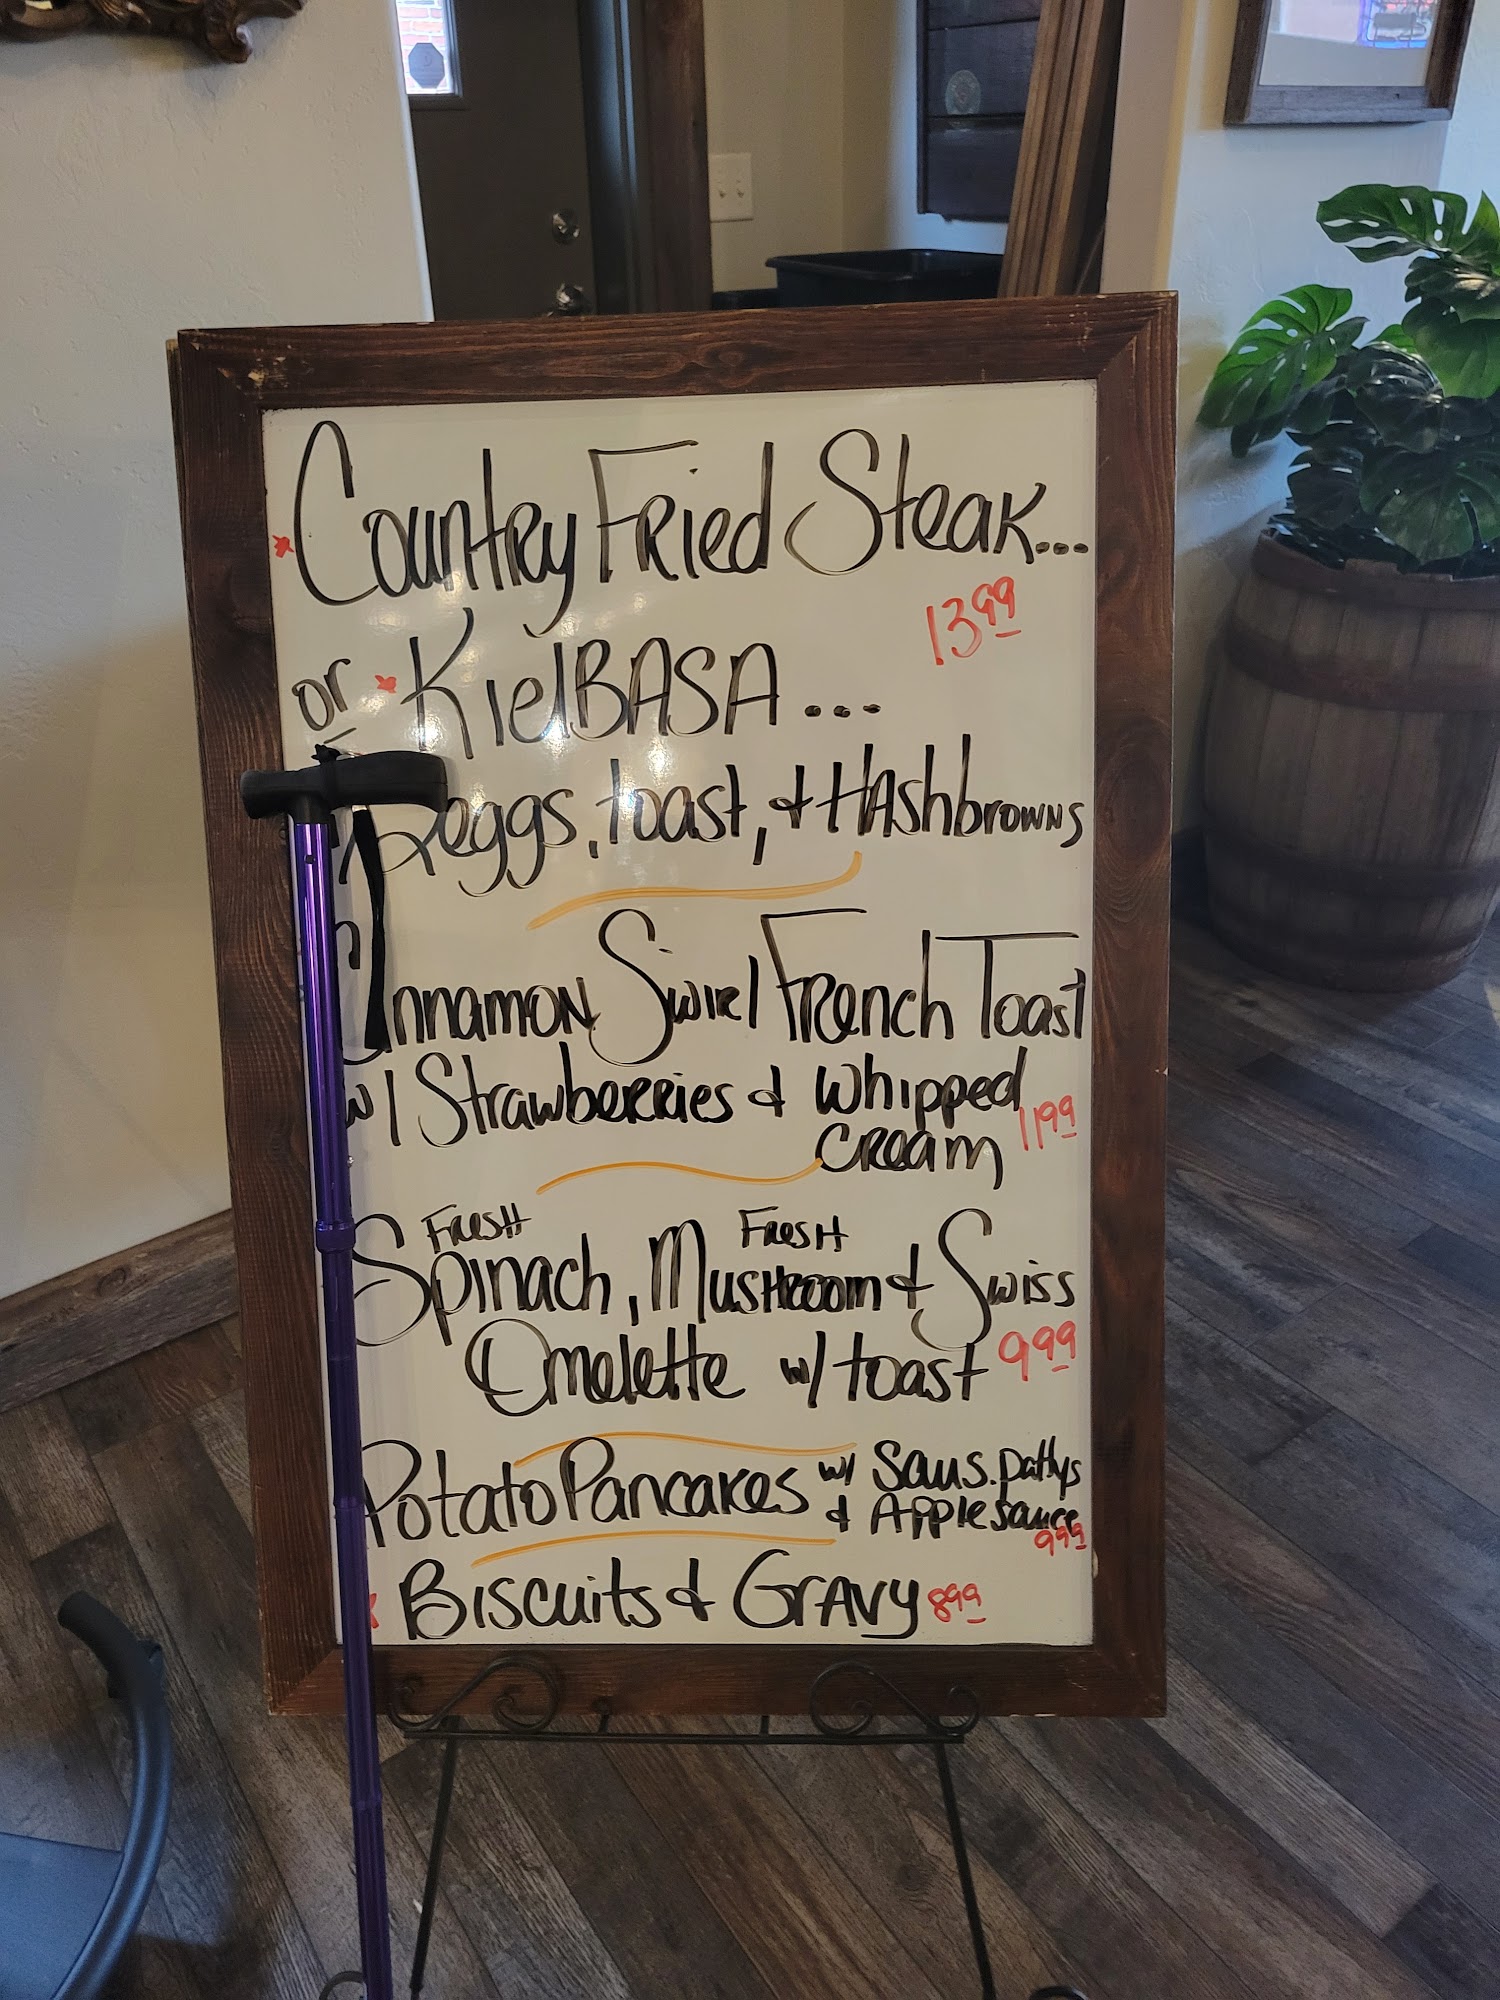 Country Fried Steak...
13.99
or Kielbasa...
eggs, toast, & Hashbrowns
Cinnamon Swirl French Toast
w/ Strawberries & Whipped
Cream 11.99
Fresh Fresh
Spinach, Mushroom & Swiss
Omelette w/ toast 9.99
Potato Pancakes w/ Saus. pattys
& Applesauce
9.99
Biscuits & Gravy 8.99